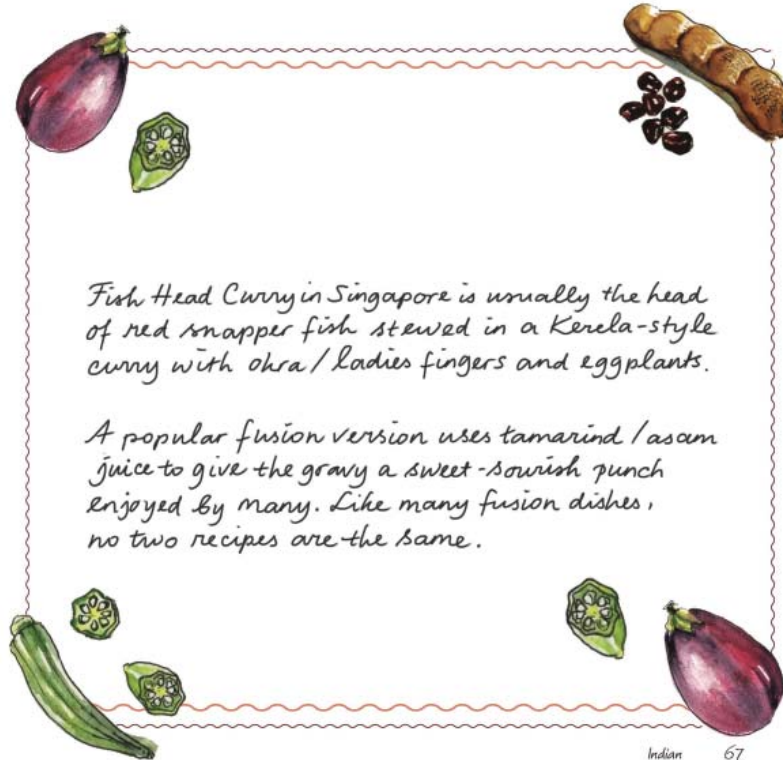 Fish Head Curry in Singapore is usually the head
of red snapper fish stewed in a Kerela-style
curry with okra / ladies fingers and eggplants.
A popular fusion version uses tamarind / asam
juice to give the gravy a sweet-sourish punch
enjoyed by many. Like many fusion dishes,
no two recipes are the same.
Indian 67